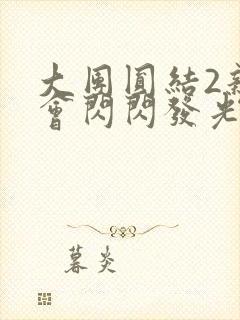 大團圓結2新
會閃閃發光
暮炎